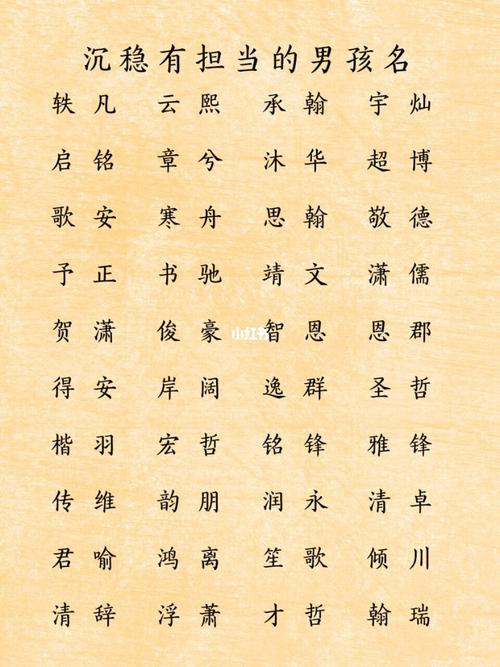 沉稳有担当的男孩名
轶凡 云熙 承翰 宇灿
启铭 章兮 沐华 超博
歌安 寒舟 思翰 敬德
予正 书驰 靖文 潇儒
贺潇 俊豪 智恩 恩郡
小红书
得安 岸阔 逸群 圣哲
楷羽 宏哲 铭锋 雅锋
传维 韵朋 润永 清卓
君喻 鸿离 笙歌 倾川
清辞 浮萧 才哲 翰瑞